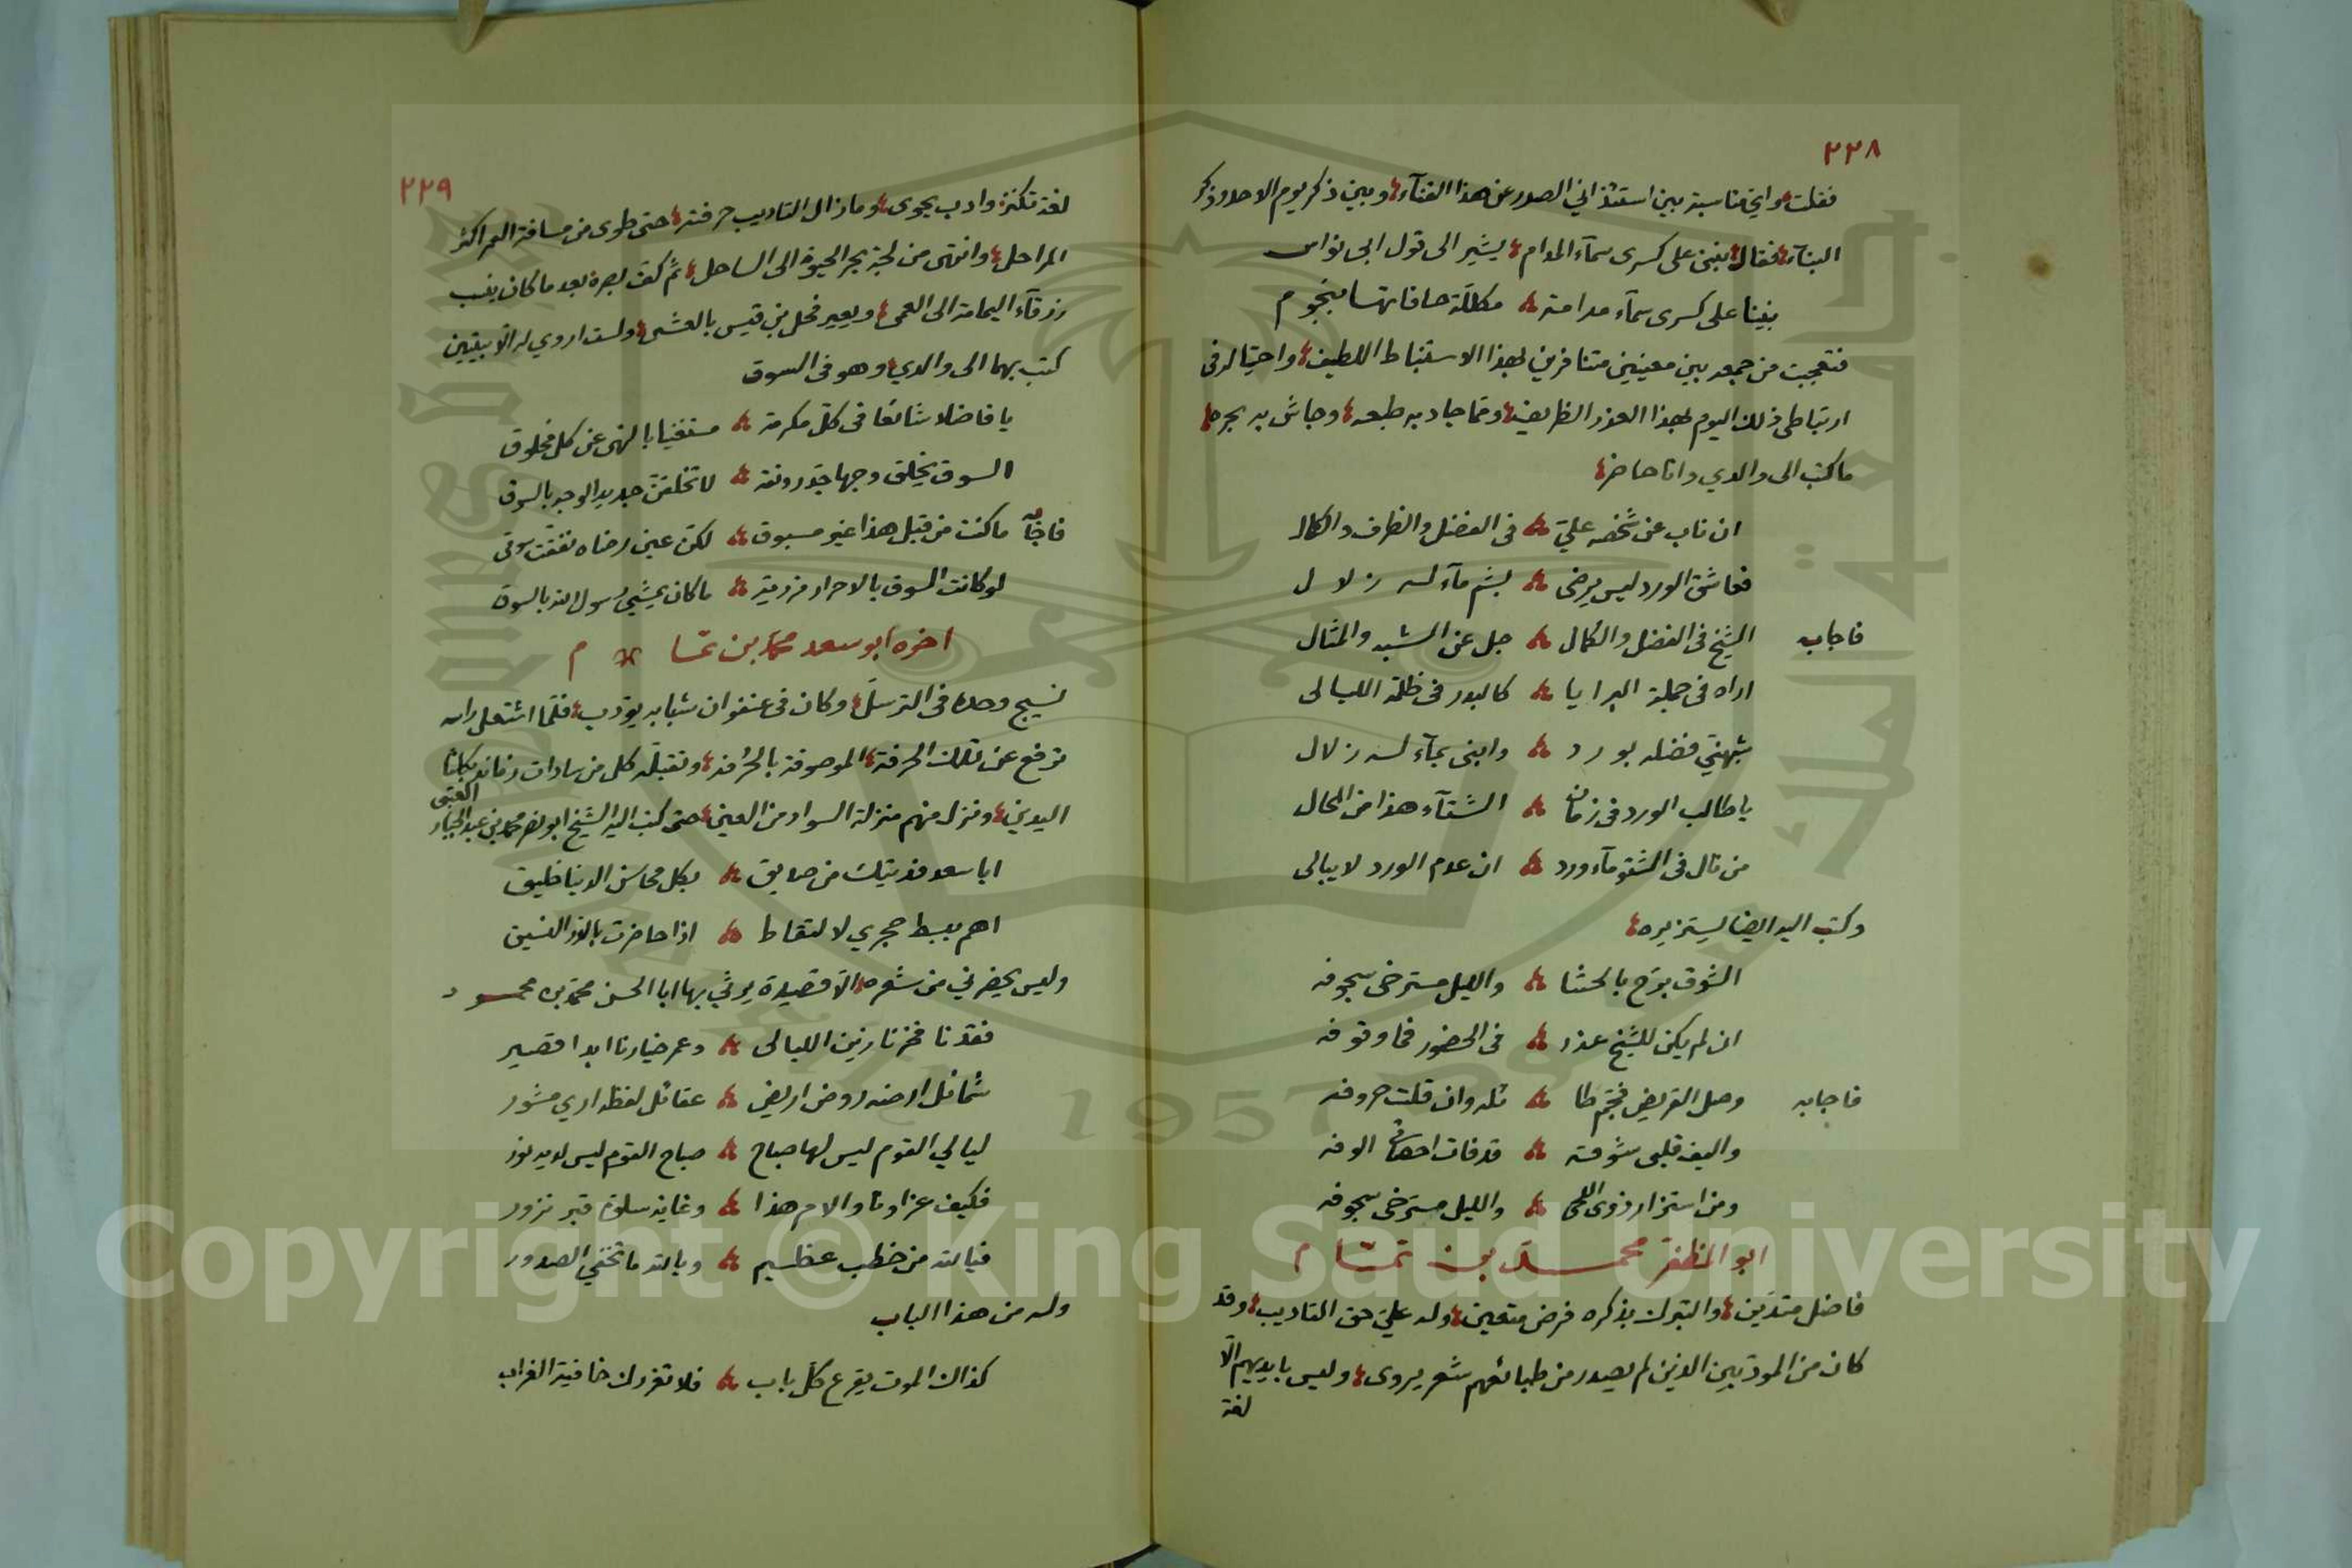 ٢٢٨
فقلت واي مناسبة بين استئذاني الصدر عن هذا الفنآء وبين ذكر يوم الاحد وذكر
البنآء فقال بنينا على كسرى سمآء المدام يشير الى قول ابى نواس
بنينا على كسرى سمآء مدامة مكللة حافاتها بنجوم
فتعجبت من جمعه بين معنيين متنافرين لهذا الاستنباط اللطيف واحتياله فى
ارتباطى ذلك اليوم بهذا العذر الظريف ومما جاد به طبعه وجاش به بحره
ما كتب الى والدي وانا حاضر
ان ناب عن شخصه علي فى الفضل والظرف والكمال
فعاشق الورد ليس يرضى بشم مآء له زلال
فاجابه الشيخ فى الفضل والكمال جل عن الشبه والمثال
اراه فى جملة البرايا كالبدر فى ظلمة الليالى
شبهني فضله بورد وابنى بمآء له زلال
يا طالب الورد فى زمان الشتآء هذا من المحال
من نال فى الشتو مآء ورد ان عدم الورد لا يبالى
وكتب اليه ايضا يستزيره
الشوق برّح بالحشا والليل مسترخى سجوفه
ان لم يكن للشيخ عذر فى الحضور فما وقوفه
فاجابه وصل القريض فجم طا ئله وان قلت حروفه
واليف قلبى شوقه قد فات احصائي الوفه
ومن استزار ذوى اللحى والليل مسترخى سجوفه
ابو المظفر محمد بن تمّام
فاضل متدين والتبرك بذكره فرض متعين وله عليّ حق التاديب وقد
كان من المودّبين الذين لم يصدر من طبائعهم شعر يروى وليس بايديهم الّا
لغة
٢٢٩
لغة تكنز وادب يحوى وما زال التاديب حرفته حتى طوى من مسافة العمر اكثر
المراحل وانتهى من لجة بحر الحيوة الى الساحل ثم كف بصره بعد ما كان ينسب
زرقآء اليمامة الى العمى ويعير فحل بن قيس بالعشى ولست اروي له الّا بيتين
كتب بهما الى والدي وهو فى السوق
يا فاضلا شائعا فى كلّ مكرمة مستغنيا بالنهى عن كل مخلوق
السوق يخلق وجها جدّ رونقه لا تخلقنّ جديد الوجه بالسوق
فاجابه ما كنت من قبل هذا غير مسبوق لكن عين رضاه نفقت سوقى
لو كانت السوق بالاحرار مزرية ما كان يمشي رسول الله بالسوق
اخوه ابو سعد محمد بن تمّام
نسيج وحده فى الترسل وكان فى عنفوان شبابه يودّب فلمّا اشتعل راسه
ترفع عن تلك الحرفة الموصوفة بالحُرفة وتقبله كل من سادات زمانه بكلتا
اليدين ونزل منهم منزلة السواد من العين حتى كتب اليه الشيخ ابو نصر محمد بن عبد الجبار
العتبى
ابا سعد فديتك من صديق بكل محاسن الدنيا خليق
اهم ببسط حجري لالتقاط اذا حاضرت بالدر النسيق
وليس يحضرني من شعره الّا قصيدة يرثي بها ابا الحسن محمد بن محمود
فقدنا فخرنا زين الليالى وعمر خيارنا ابدا قصير
شمائل ارضه روض اريض عقائل لفظه اري مشور
ليالي القوم ليس لها صباح صباح القوم ليس لديه نور
فكيف عزاونا والام هذا وغاية سلوة قبر نزور
فيالله من خطب عظيم وبالله ما تخفي الصدور
وله من هذا الباب
كذاك الموت يقرع كلّ باب فلا تغررك خافية الغراب
Copyright © King Saud University
1957